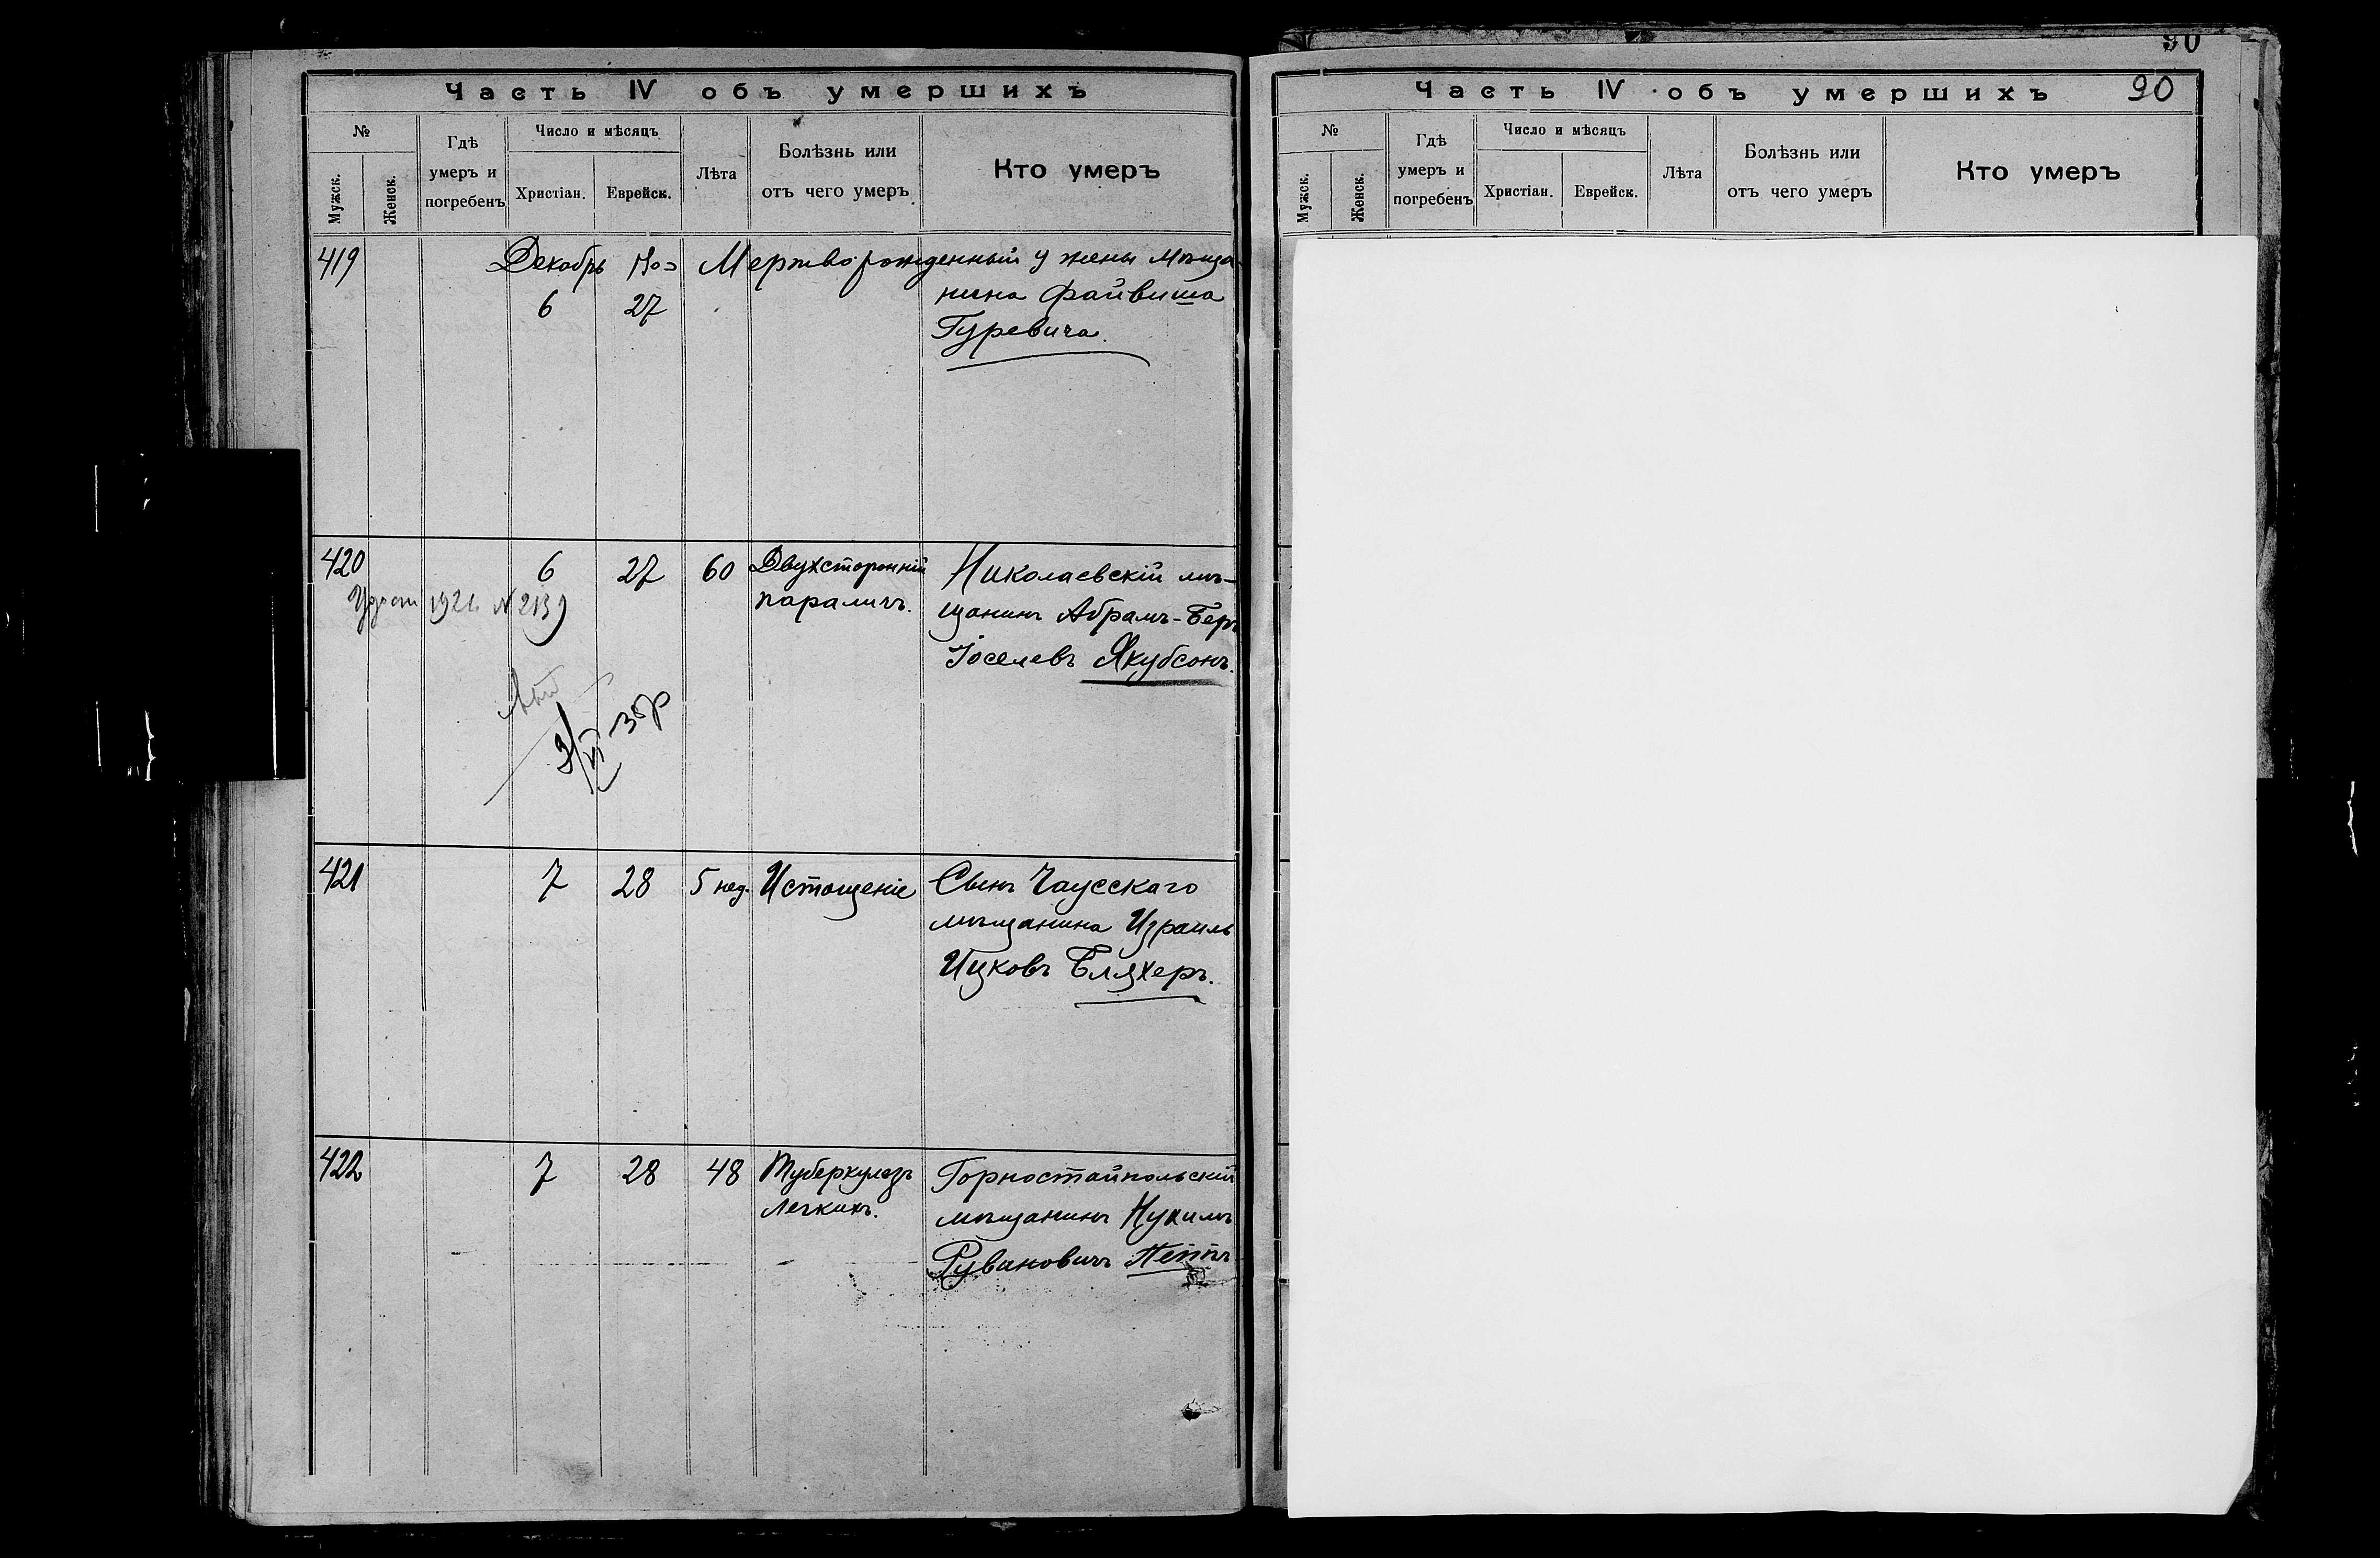 Часть IV объ умершихъ
№
Мужск.
Женск.
Гдѣ
умеръ и
погребенъ
Число и мѣсяцъ
Христіан.
Еврейск.
Лѣта
Болѣзнь или
отъ чего умеръ
Кто умеръ
419
Декабрь
6
27
Мертворожденный у жены мѣща-
нина Файвиша
Гуревича.
420
6
27
60
Двухсторонній
параличъ.
Николаевскій мѣ-
щанинъ Абрамъ-Беръ
Іоселевъ Якубсонъ.
1921 № 2139
421
7
28
5 нед.
Истощеніе
Сынъ Чаусскаго
мѣщанина Израиль
Ицковъ Бляхеръ.
422
7
28
48
Туберкулезъ
легкихъ.
Горностайпольскій
мѣщанинъ
Рувановичъ
90
Часть IV объ умершихъ
90
№
Мужск.
Женск.
Гдѣ
умеръ и
погребенъ
Число и мѣсяцъ
Христіан.
Еврейск.
Лѣта
Болѣзнь или
отъ чего умеръ
Кто умеръ